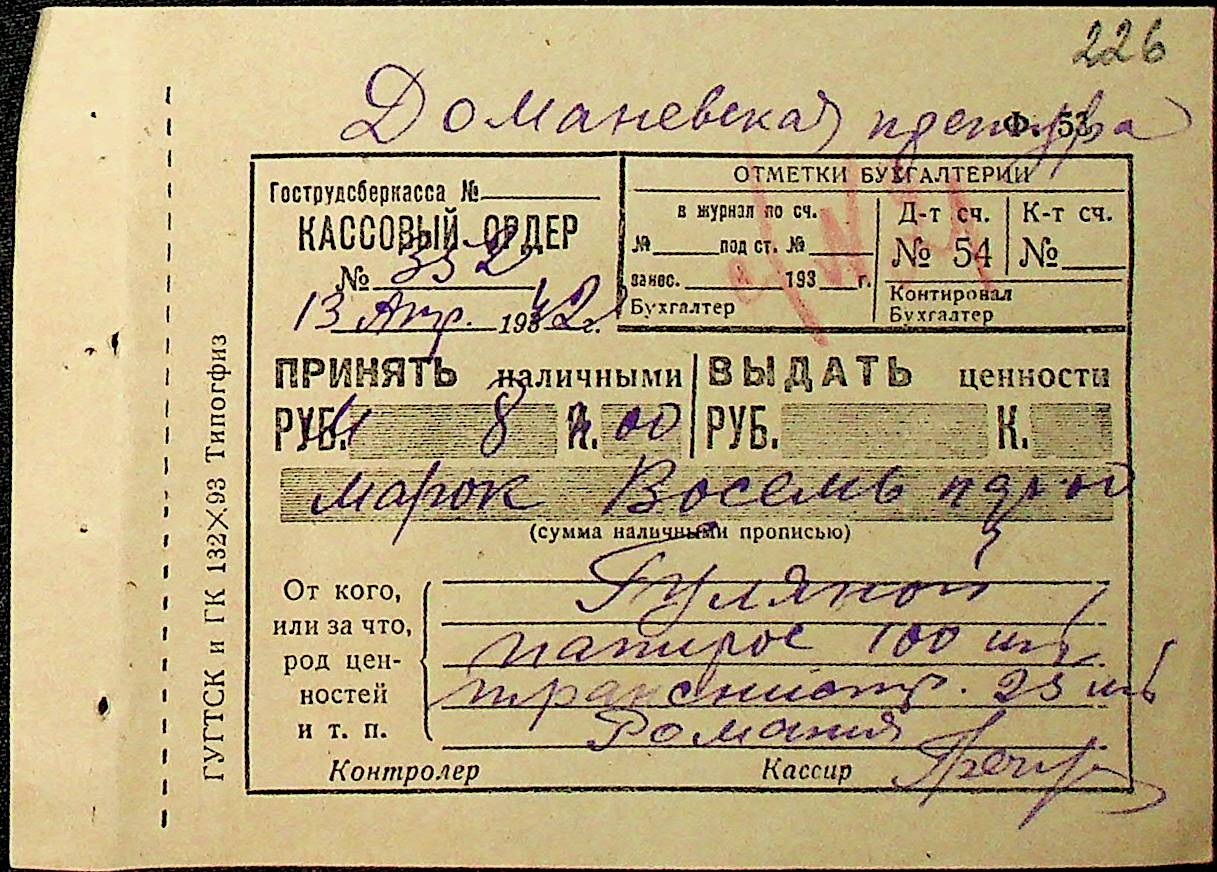 226
Доманевская претура
Ф. 53
Гострудсберкасса №
КАССОВЫЙ ОРДЕР
№ 352
13 Апр. 1942 г.
ОТМЕТКИ БУХГАЛТЕРИИ
в журнал по сч.
№ под ст. №
занес. 193 г.
Бухгалтер
Д-т сч.
№ 54
Контировал
Бухгалтер
К-т сч.
№
ПРИНЯТЬ наличными
РУБ. 8 К. 00
ВЫДАТЬ ценности
РУБ. К.
марок Восемь
(сумма наличными прописью)
От кого,
или за что,
род цен-
ностей
и т. п.
папирос 100 шт
25 шт
Романия
Контролер
Кассир
ГУГТСК и ГК 132×93 Типогфиз